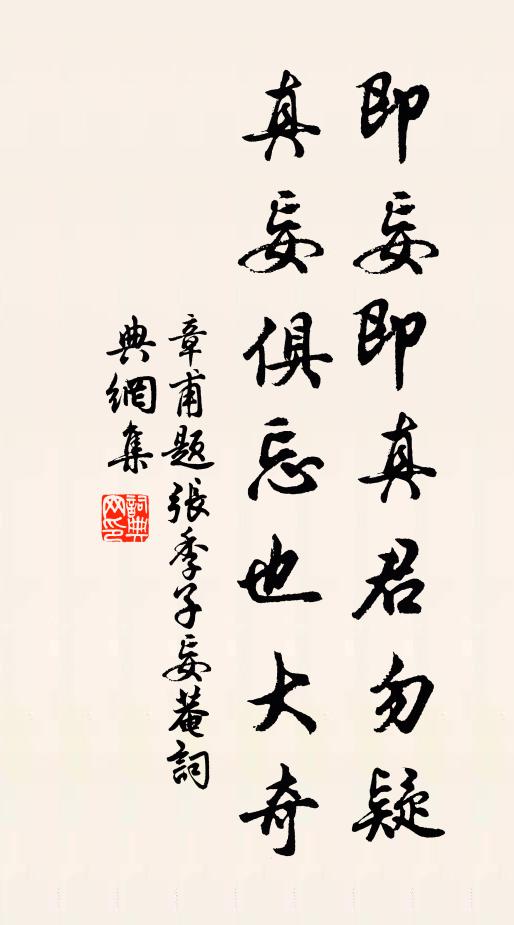 即妄即真君勿疑
真妄俱忘也大奇
章甫题張季子妄菴詞
典網集
詞典网印